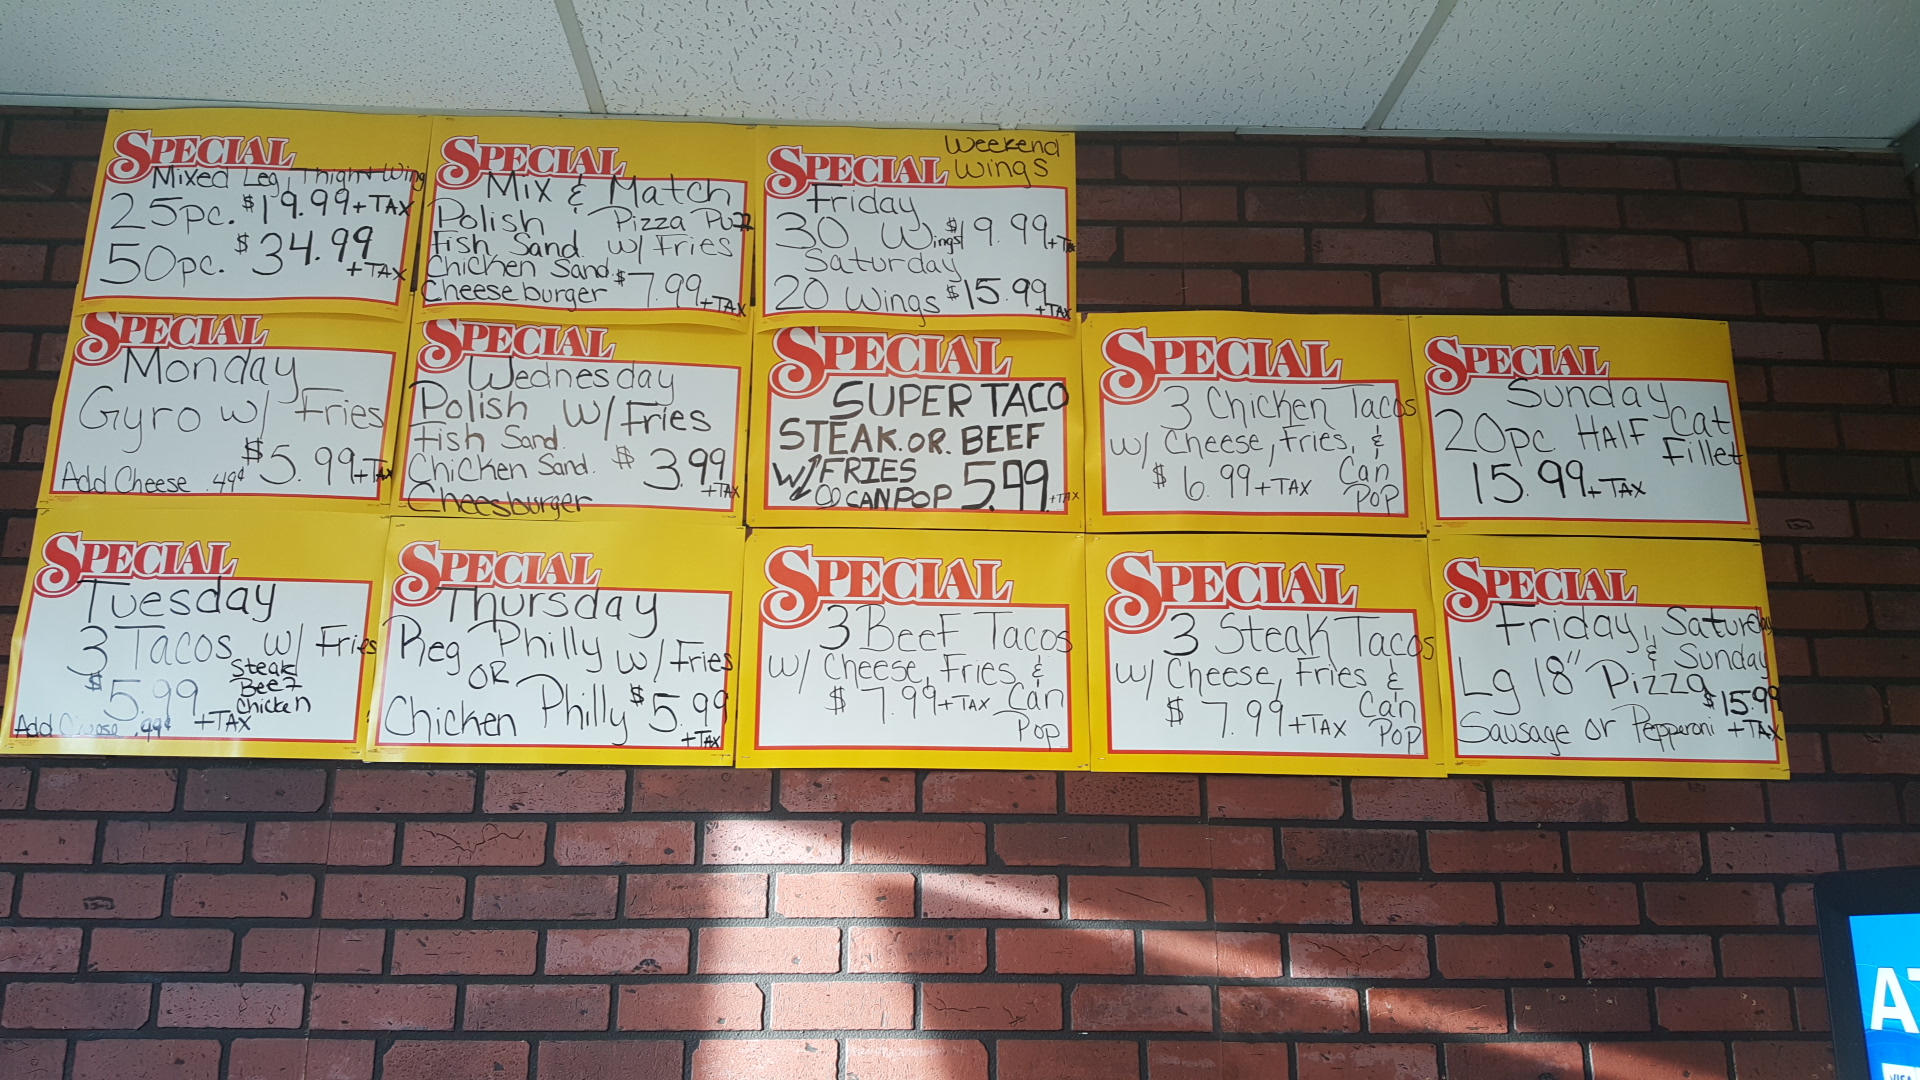 SPECIAL
Mixed Leg, Thigh + Wing
25pc. $19.99 + TAX
50pc. $34.99
+ TAX
SPECIAL
Mix & Match
Polish Pizza Puff
Fish Sand. w/ Fries
Chicken Sand. $7.99
Cheeseburger + TAX
Weekend
SPECIAL Wings
Friday
30 Wings $19.99 + TAX
Saturday
20 Wings $15.99
+ TAX
SPECIAL
Monday
Gyro w/ Fries
$5.99 + TAX
Add Cheese .49¢
SPECIAL
Wednesday
Polish w/ Fries
Fish Sand.
Chicken Sand. $3.99
+ TAX
Cheesburger
SPECIAL
SUPER TACO
STEAK OR BEEF
W/ FRIES
CAN POP 5.99 + TAX
SPECIAL
3 Chicken Tacos
w/ Cheese, Fries, &
$6.99 + TAX Can
Pop
SPECIAL
Sunday
20pc HALF Cat
Fillet
15.99 + TAX
SPECIAL
Tuesday
3 Tacos w/ Fries
Steak
$5.99 Beef
Chicken
Add Cheese .49¢ + TAX
SPECIAL
Thursday
Reg Philly w/ Fries
OR
Chicken Philly $5.99
+ TAX
SPECIAL
3 Beef Tacos
w/ Cheese, Fries, &
$7.99 + TAX Can
Pop
SPECIAL
3 Steak Tacos
w/ Cheese, Fries &
$7.99 + TAX Can
Pop
SPECIAL
Friday, Saturday
& Sunday
Lg 18" Pizza $15.99
Sausage or Pepperoni + TAX
VISA